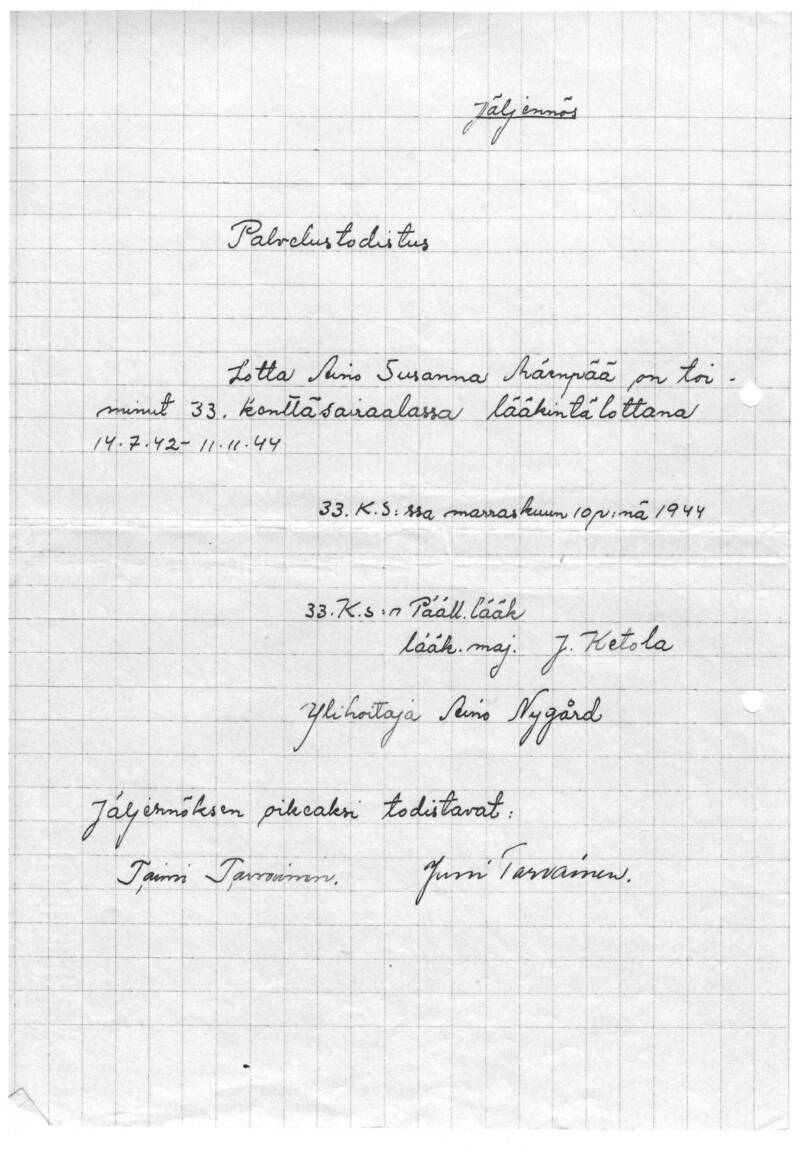 Jäljennös
Palvelustodistus
Lotta Aino Susanna Kärnpää on toi-
minut 33. Kenttäsairaalassa lääkintälottana
14.7.42- 11.11.44
33. K.S:ssa marraskuun 10 p:nä 1944
33.K.s:n Pääll. lääk
lääk.maj. J. Ketola
Ylihoitaja Aino Nygård
Jäljennöksen oikeaksi todistavat:
Taimi Tarvainen. Tarvainen.